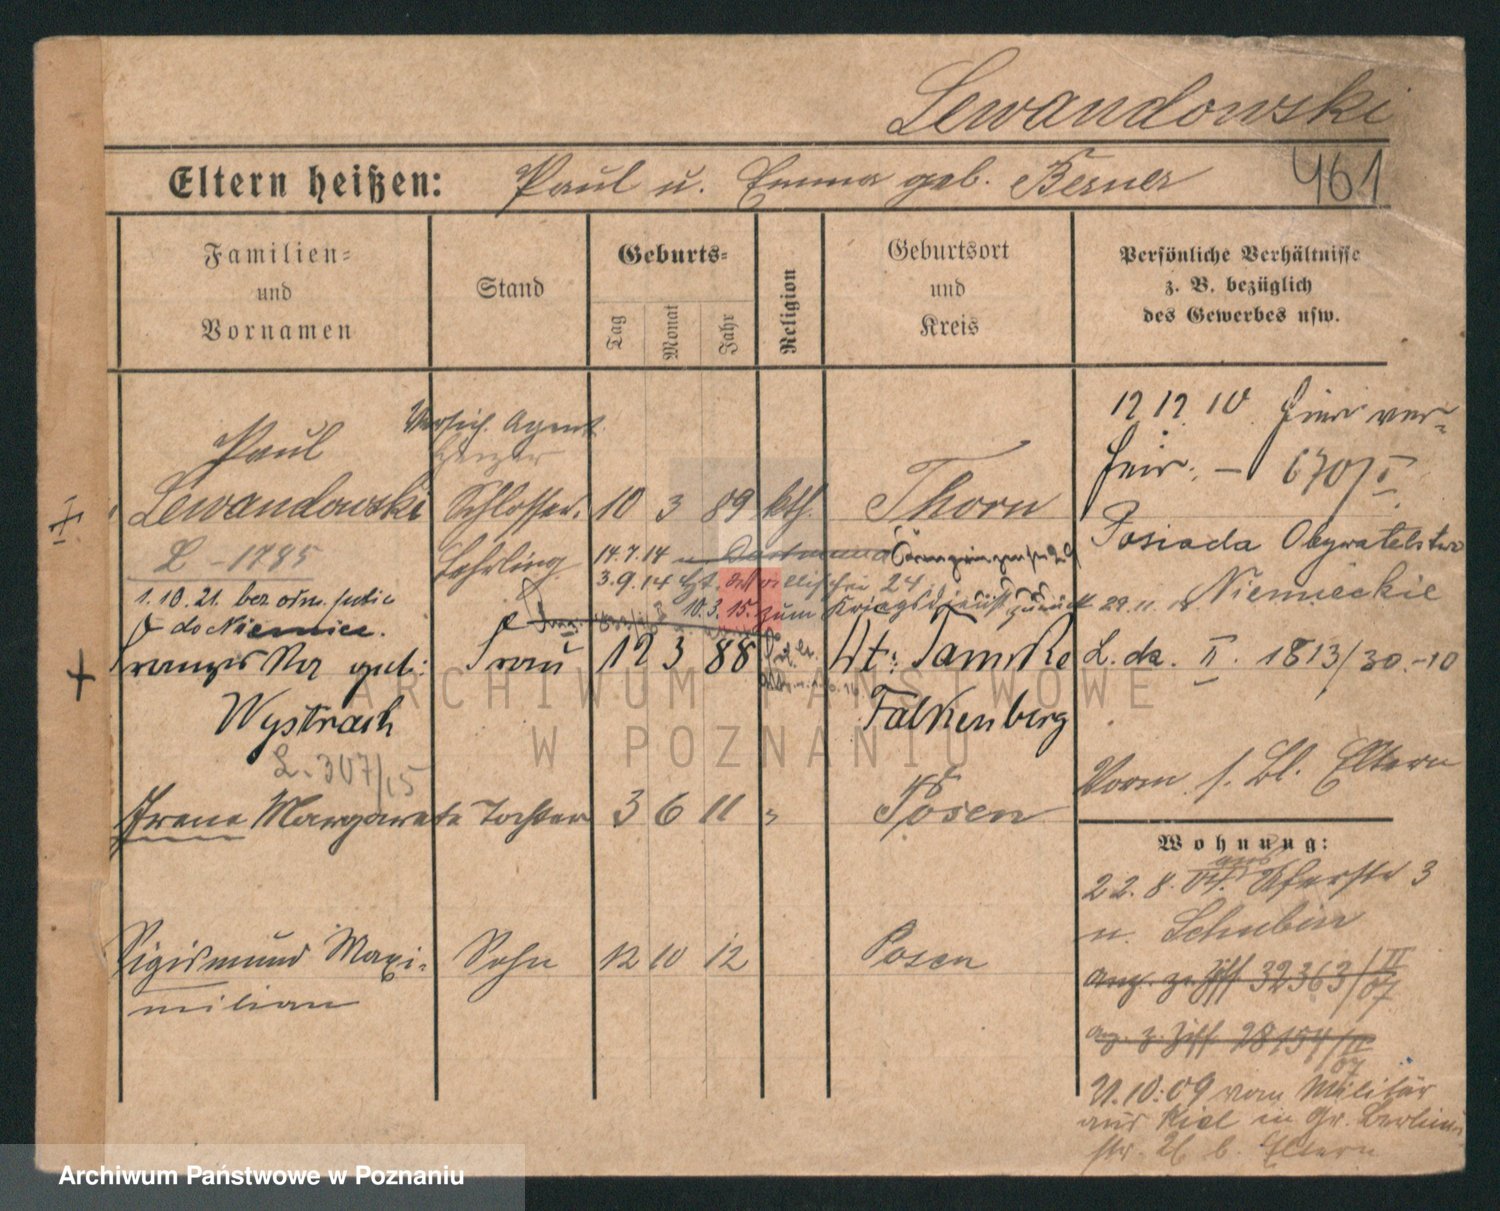 Lewandowski
Eltern heißen: Paul u. Emma geb. Berner 461
Familien-
und
Vornamen
Stand
Geburts-
Tag
Monat
Jahr
Religion
Geburtsort
und
Kreis
Persönliche Verhältnisse
z. B. bezüglich
des Gewerbes usw.
Versich. Agent
Heizer
Paul
Lewandowski Schlosser. 10 3 89 kth. Thorn
Lehrling.
L-1785
1.10.21.
do Niemiec.
14.7.14
3.9.14 24
10.3.15. zum Kriegsdienst zurück
Franziska geb: Frau 12 3 88 Tamke
Wystrach Falkenberg
L. 307/15
Irene Margarete Tochter 3 6 11 " Posen
Sigismund Maxi- Sohn 12 10 12 Posen
milian
12 12 10
670/I
Posiada Obywatelstwo
29.11. Niemieckie
L. dz. II. 1813/30.-10
Vorm. s. Bl. Eltern
Wohnung:
22.8.04. aus 3
u. Schubin
ang. z. Ziff 32363/III 07
ang. z. Ziff 28154/ 07
21.10.09 vom Militär
aus Kiel in Gr. Berliner-
str. b. Eltern
ARCHIWUM PAŃSTWOWE
W POZNANIU
Archiwum Państwowe w Poznaniu